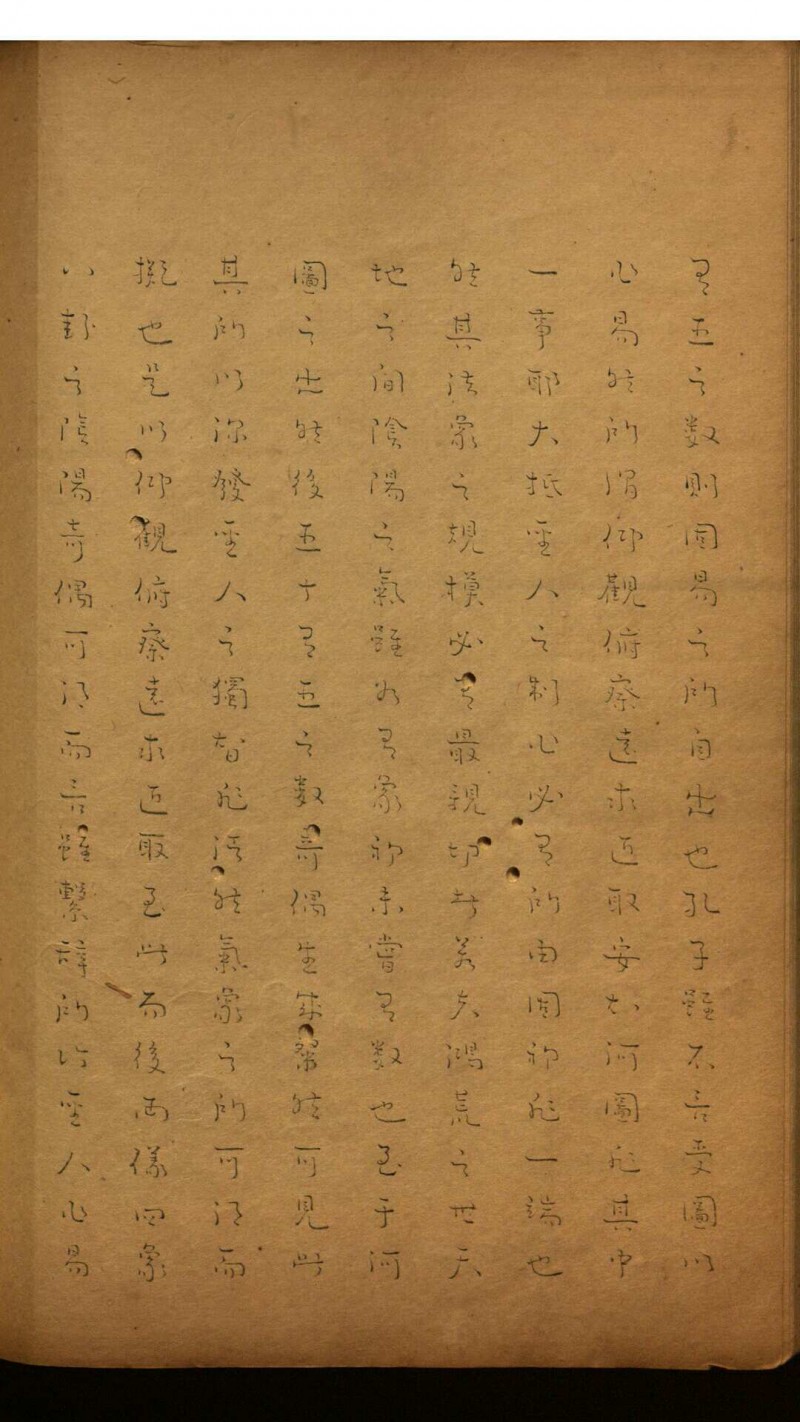 有五之數則周易之所自出也孔子雖不言受圖以
作易然所謂仰觀俯察遠求近取安知河圖非其中
一事耶大抵聖人之制作必有所由固初非一端也
然其法象之規模必有最親切者若夫鴻荒之世天
地之間陰陽之氣雖各有象初未嘗有數也至于河
圖之出然後五十有五之數奇偶生成粲然可見此
其所以深發聖人之獨智非泛然氣象之所可得而
擬也是以仰觀俯察遠求近取至此而後兩儀四象
八卦之陰陽奇偶可得而言雖繫辭所論聖人作易